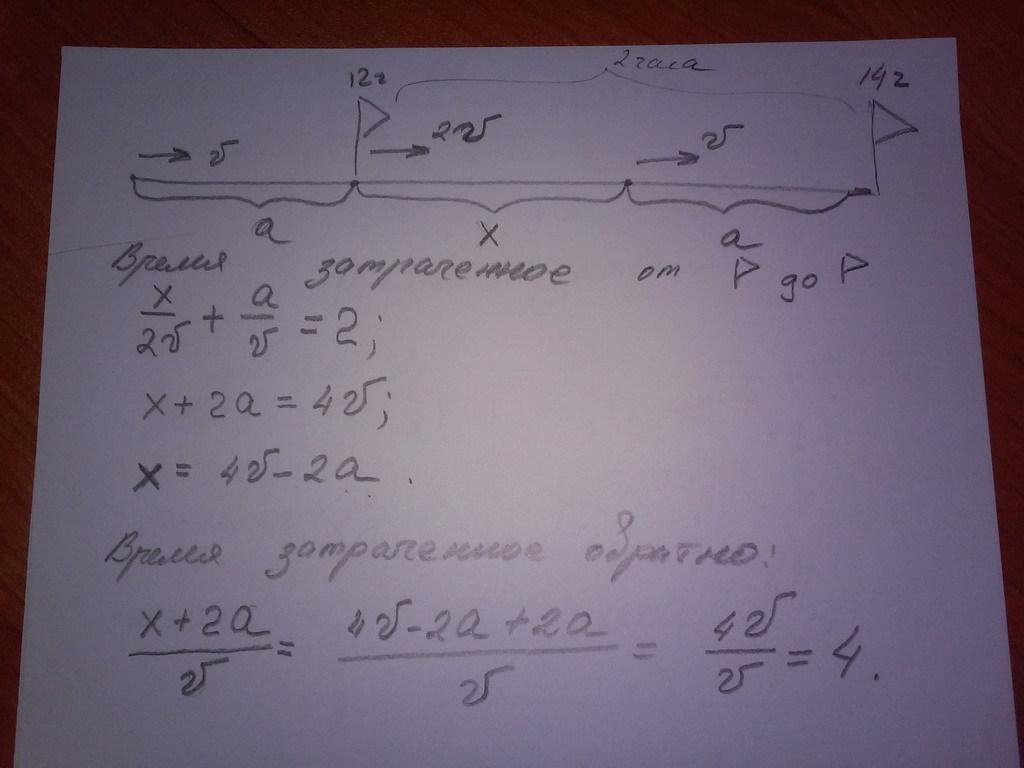 2 часа
12ч 14ч
v 2v v
a x a
Время затраченное от до
x/2v + a/v = 2;
x + 2a = 4v;
x = 4v - 2a .
Время затраченное обратно:
x + 2a/v = 4v - 2a + 2a/v = 4v/v = 4.